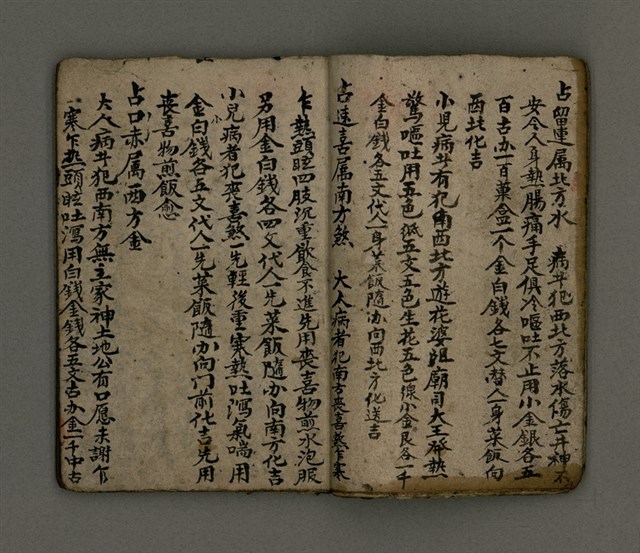 占留連属北方水 病年犯西北方落水傷亡井神不
安令人身熱腸痛手足俱冷嘔吐不止用小金銀各五
百古办一百菓盒一个金白錢各七文替人一身菜飯向
西北化吉
小児病年有犯南西北方遊花婆姐廟司大王發熱
驚嘔吐用五色紙五文五色生花五色線小金艮各一千
金白錢各五文代一身菜飯隨办向西北方化送吉
占速喜属南方煞 大人病者犯南方喪喜煞乍寒
乍熱頭眩四肢沉重飲食不進先用喪喜物煎水泡服
另用金白錢各四文代人一先菜飯隨办向南方化吉
小児病者犯喪喜煞一先輕後重寒熱吐瀉氣喘用
金白錢各五文代人一先菜飯隨办向門前化吉先用
喪喜物煎飯愈
占口赤属西方金
大人病年犯西南方無主家神土地公有口愿未謝乍
寒乍热頭眩吐瀉用白錢金錢各五文古办金一千中古